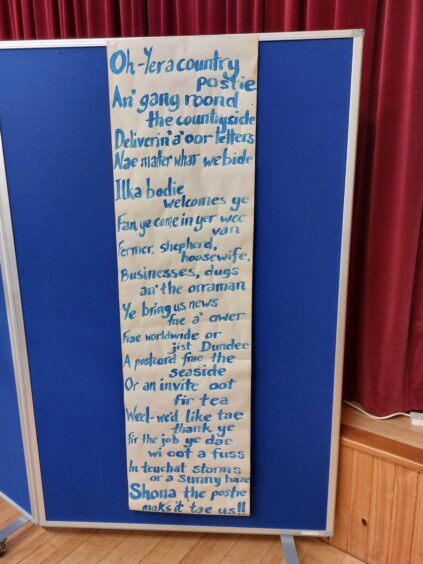 Oh-Yer a country
postie
An' gang roond
the countryside
Deliverin' a' oor letters
Nae matter whar we bide
Ilka bodie
welcomes ye
Fan ye come in yer wee
van
Fermer, shepherd,
hoosewife,
Businesses, dugs
an' the orraman
Ye bring us news
fae a' ower
Frae worldwide or
jist Dundee
A postcard frae the
seaside
Or an invite oot
fir tea
Weel-we'd like tae
thank ye
Fir the job ye dae
wi oot a fuss
In teuchat storms
or a sunny haze
Shona the postie
maks it tae us!!